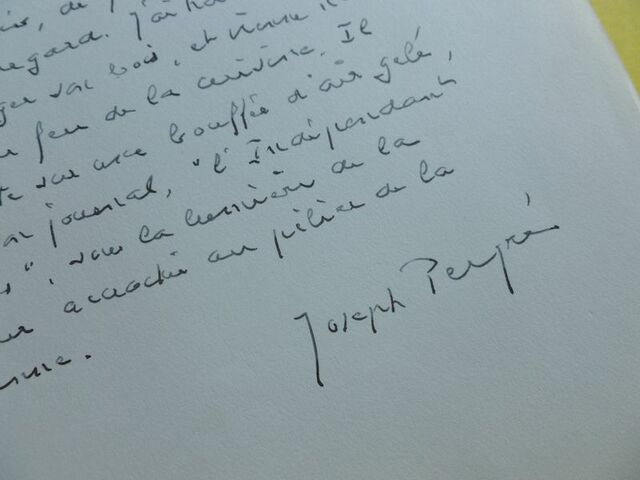 de
regard. J'ai
ger son bois, et vienne
feu de la cuisine. Il
sur une bouffée d'air gelé,
journal, "l'Indépendant
", sous la lumière de la
accrochée au pilier de la
Joseph Peyré